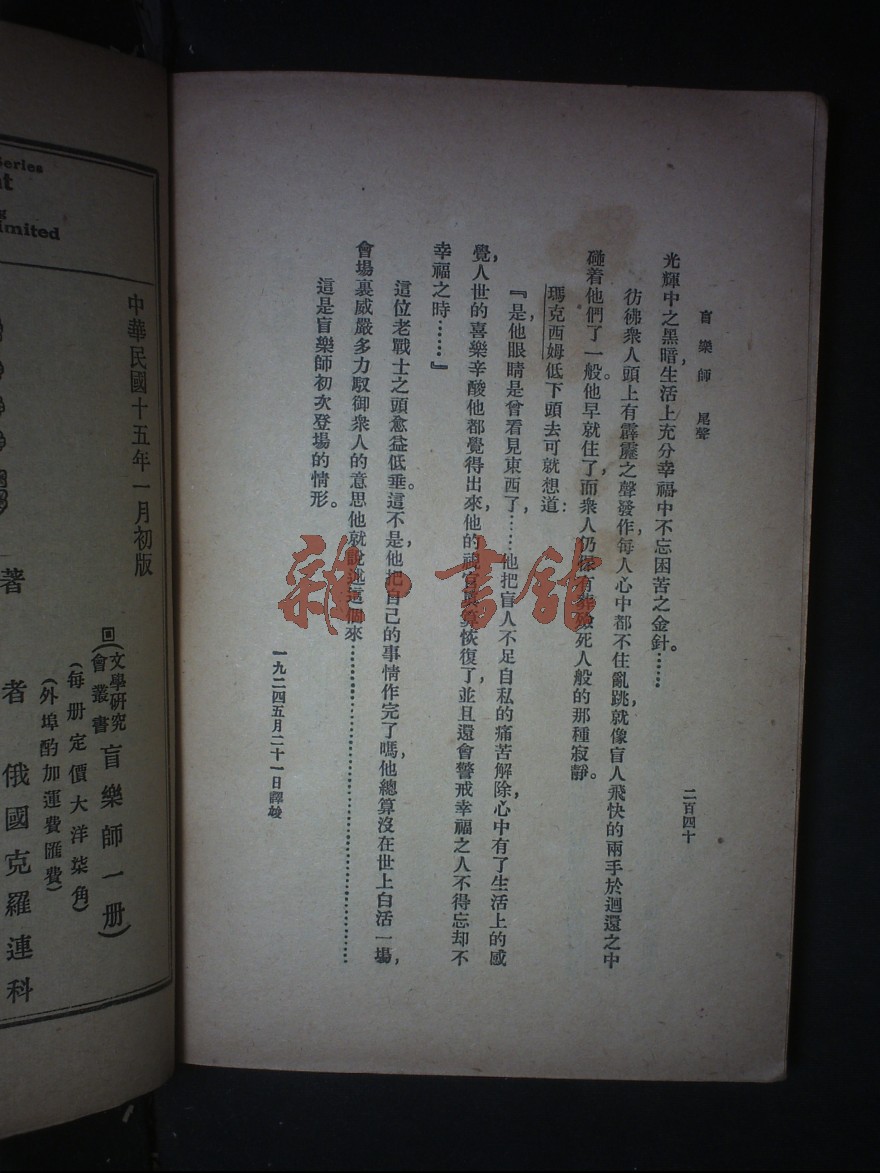 盲樂師　尾聲
二百四十
光輝中之黑暗，生活上充分幸福中不忘困苦之金針。……
彷彿衆人頭上有霹靂之聲發作，每人心中都不住亂跳，就像盲人飛快的兩手於迴還之中
碰着他們了一般。他早就住了，而衆人仍保有葬殮死人般的那種寂靜。
瑪克西姆低下頭去，可就想道：
『是，他眼睛是曾看見東西了……他把盲人不足自私的痛苦解除，心中有了生活上的感
覺，人世的喜樂辛酸他都覺得出來，他的視官算恢復了，並且還會警戒幸福之人不得忘却不
幸福之時……』
這位老戰士之頭愈益低垂。這不是他把自己的事情作完了嗎，他總算沒在世上白活一場，
會場裏威嚴多力馭御衆人的意思他就說述這個來……
這是盲樂師初次登場的情形。
一九二四五月二十一日譯竣
雜·書館
Series
imited
中華民國十五年一月初版
文學研究
會叢書
盲樂師一册)
(每册定價大洋柒角)
(外埠酌加運費匯費)
著
者
俄國克羅連科